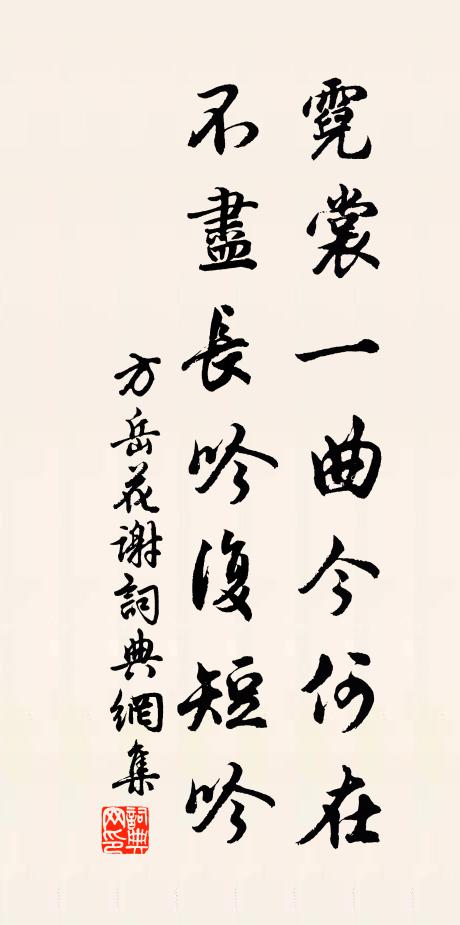 霓裳一曲今何在
不盡長吟復短吟
方岳花謝詞典網集
詞典網印